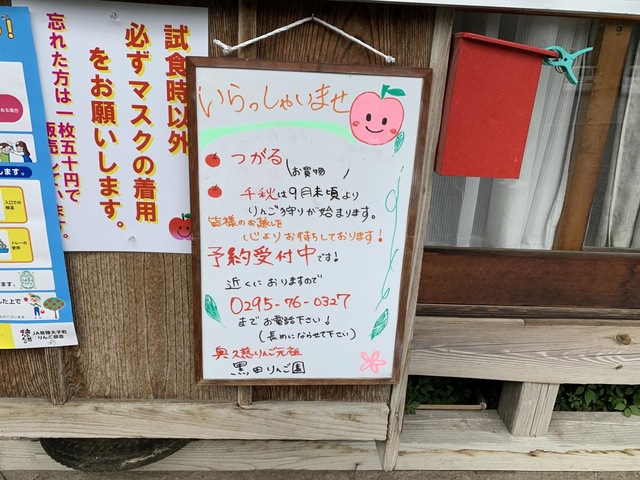 試食時以外
必ずマスクの着用
をお願いします。
忘れた方は一枚五十円で
販売しています。
いらっしゃいませ
つがる
お買物
千秋は9月末頃より
りんご狩りが始まります。
皆様のお越しを
心よりお待ちしております!
予約受付中です!
近くにおりますので
0295-76-0327
までお電話下さい!
(長めにならせて下さい)
奥久慈りんご元祖
黒田りんご園
入口での
トレーの
使用
JA常陸大子町
りんご部会